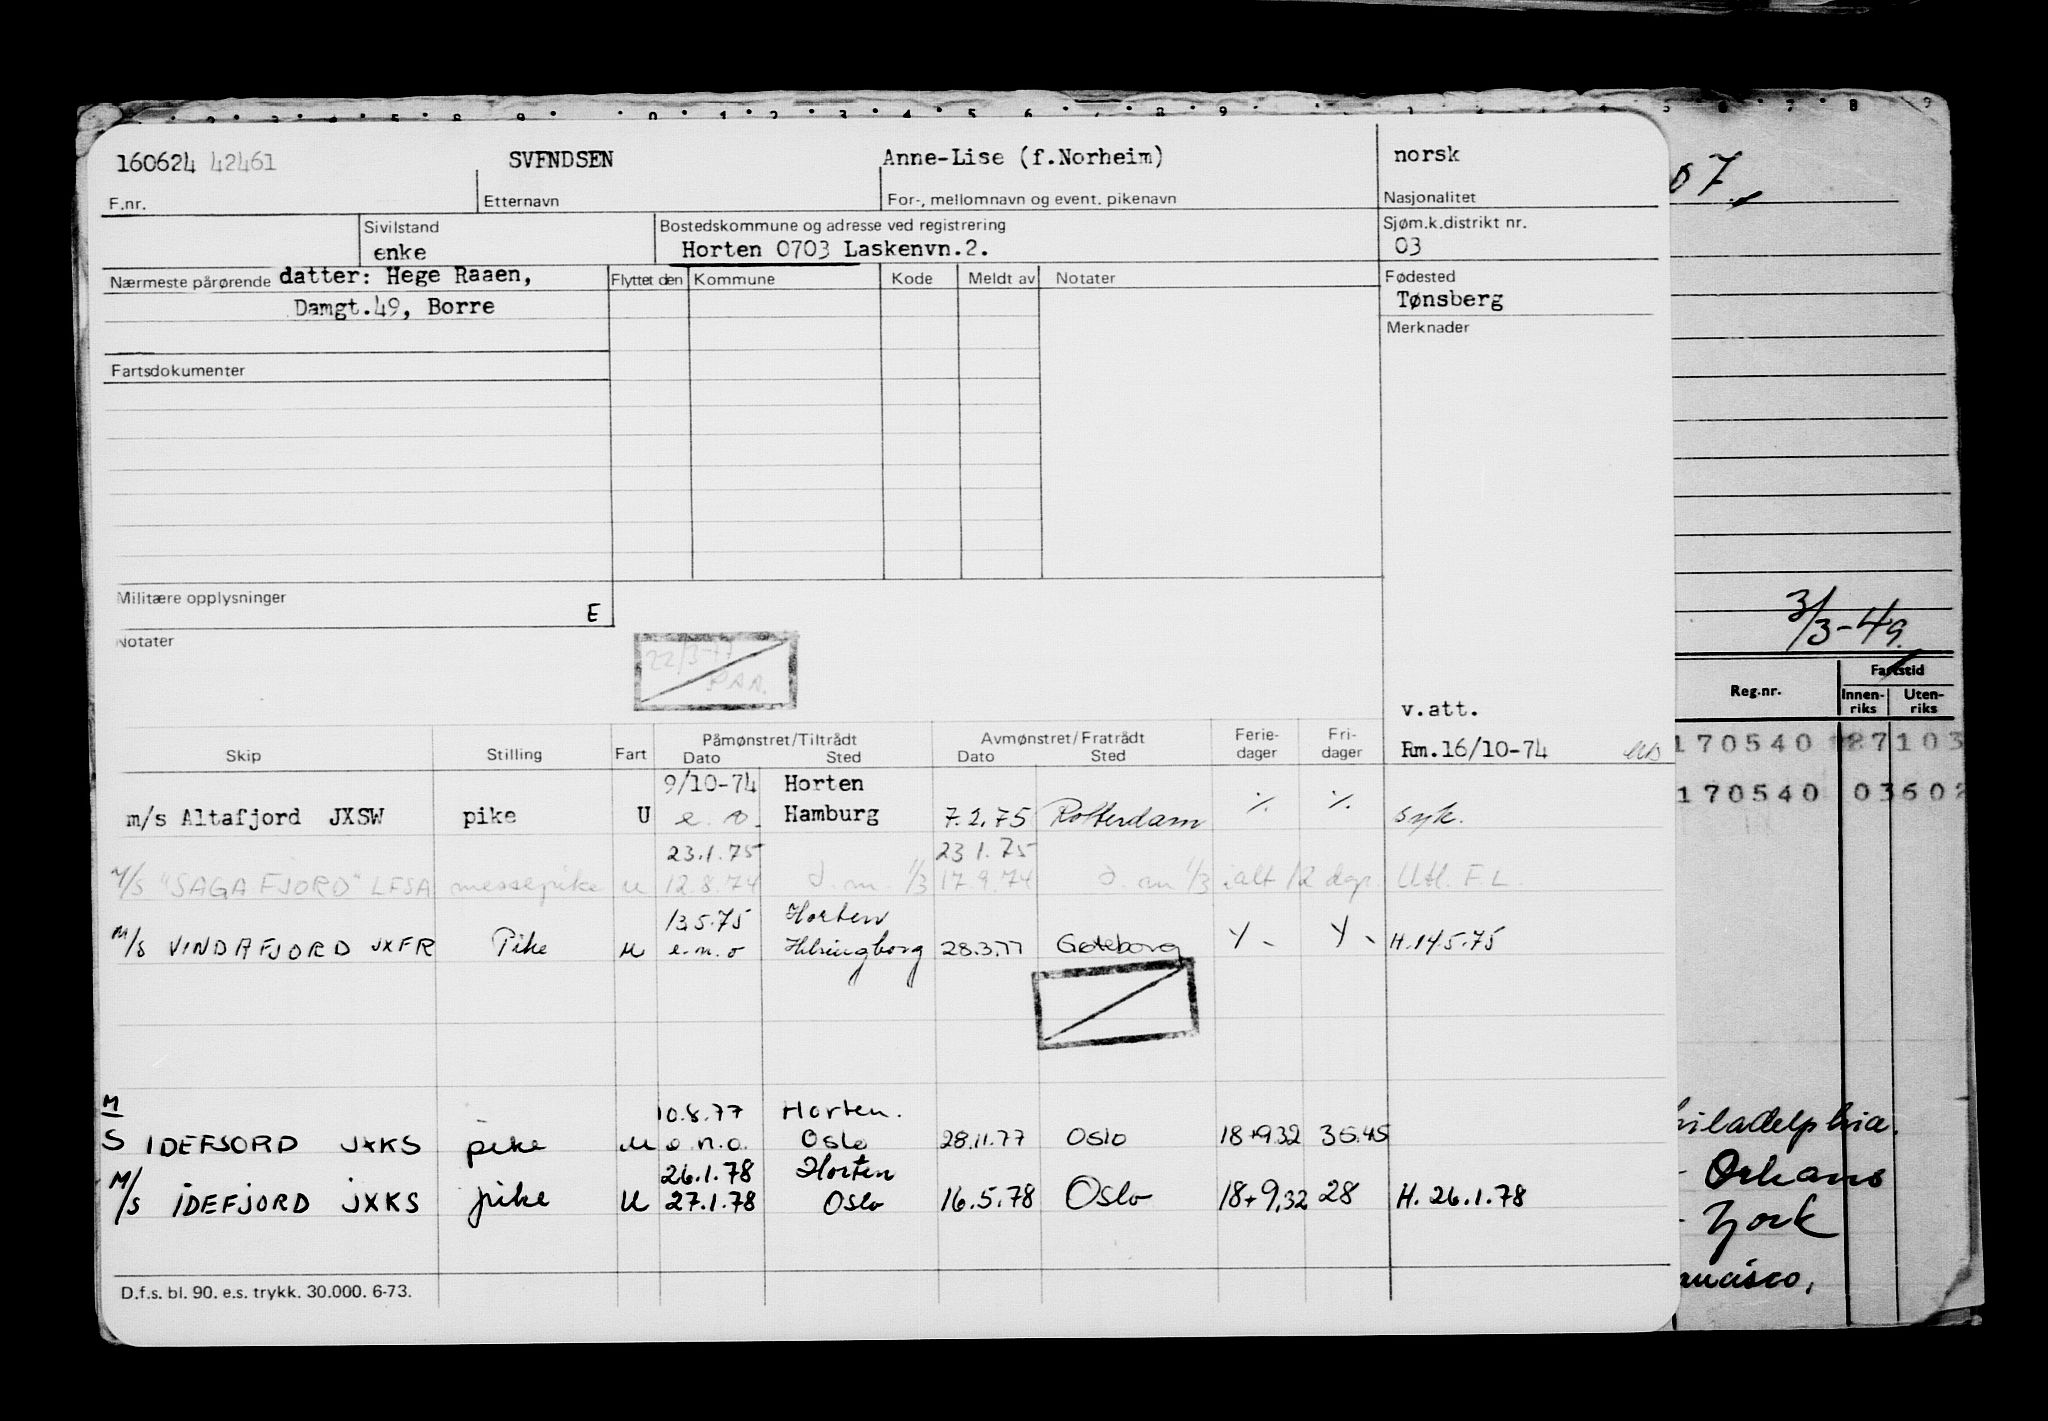 160624 42461 SVENDSEN Anne-Lise (f.Norheim) norsk
F.nr. Etternavn For-, mellomnavn og event. pikenavn Nasjonalitet
Sivilstand Bostedskommune og adresse ved registrering Sjøm.k.distrikt nr.
enke Horten 0703 Laskenvn.2. 03
Nærmeste pårørende datter: Hege Raaen, Flyttet den Kommune Kode Meldt av Notater Fødested
Damgt.49, Borre Tønsberg
Merknader
Fartsdokumenter
Militære opplysninger
E
Notater
22/3-77
PAR.
v.att.
Skip Stilling Fart Påmønstret/Tiltrådt Avmønstret/Fratrådt Ferie- Fri-
Dato Sted Dato Sted dager dager Rm.16/10-74
9/10-74 Horten
m/s Altafjord JXSW pike U e. o. Hamburg 7.2.75 Rotterdam % % syk.
23.1.75 23.1.75
M/S "SAGAFJORD" LFSA messepike u 12.8.74 d.m. 1/3 17.9.74 d.m 1/3 ialt 12 dgr. Utl. F.L.
13.5.75 Horten
M/S VINDAFJORD JXFR Pike u e.n.o Helsingborg 28.3.77 Gøteborg H.14.5.75
10.8.77 Horten.
M/S IDEFJORD JXKS pike u e.n.o. Oslo 28.11.77 Oslo 18+9.32 36.45
26.1.78 Horten
M/S IDEFJORD JXKS pike U 27.1.78 Oslo 16.5.78 Oslo 18+9,32 28 H. 26.1.78
D.f.s. bl. 90. e.s. trykk. 30.000. 6-73.
07
3/3-49
Fartstid
Reg.nr. Innen- Uten-
riks riks
170540 87103
170540 03602
Philadelphia.
Orleans
York
ancisco,